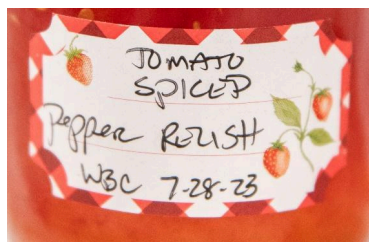 TOMATO
SPICED
Pepper RELISH
WBC 7-28-23